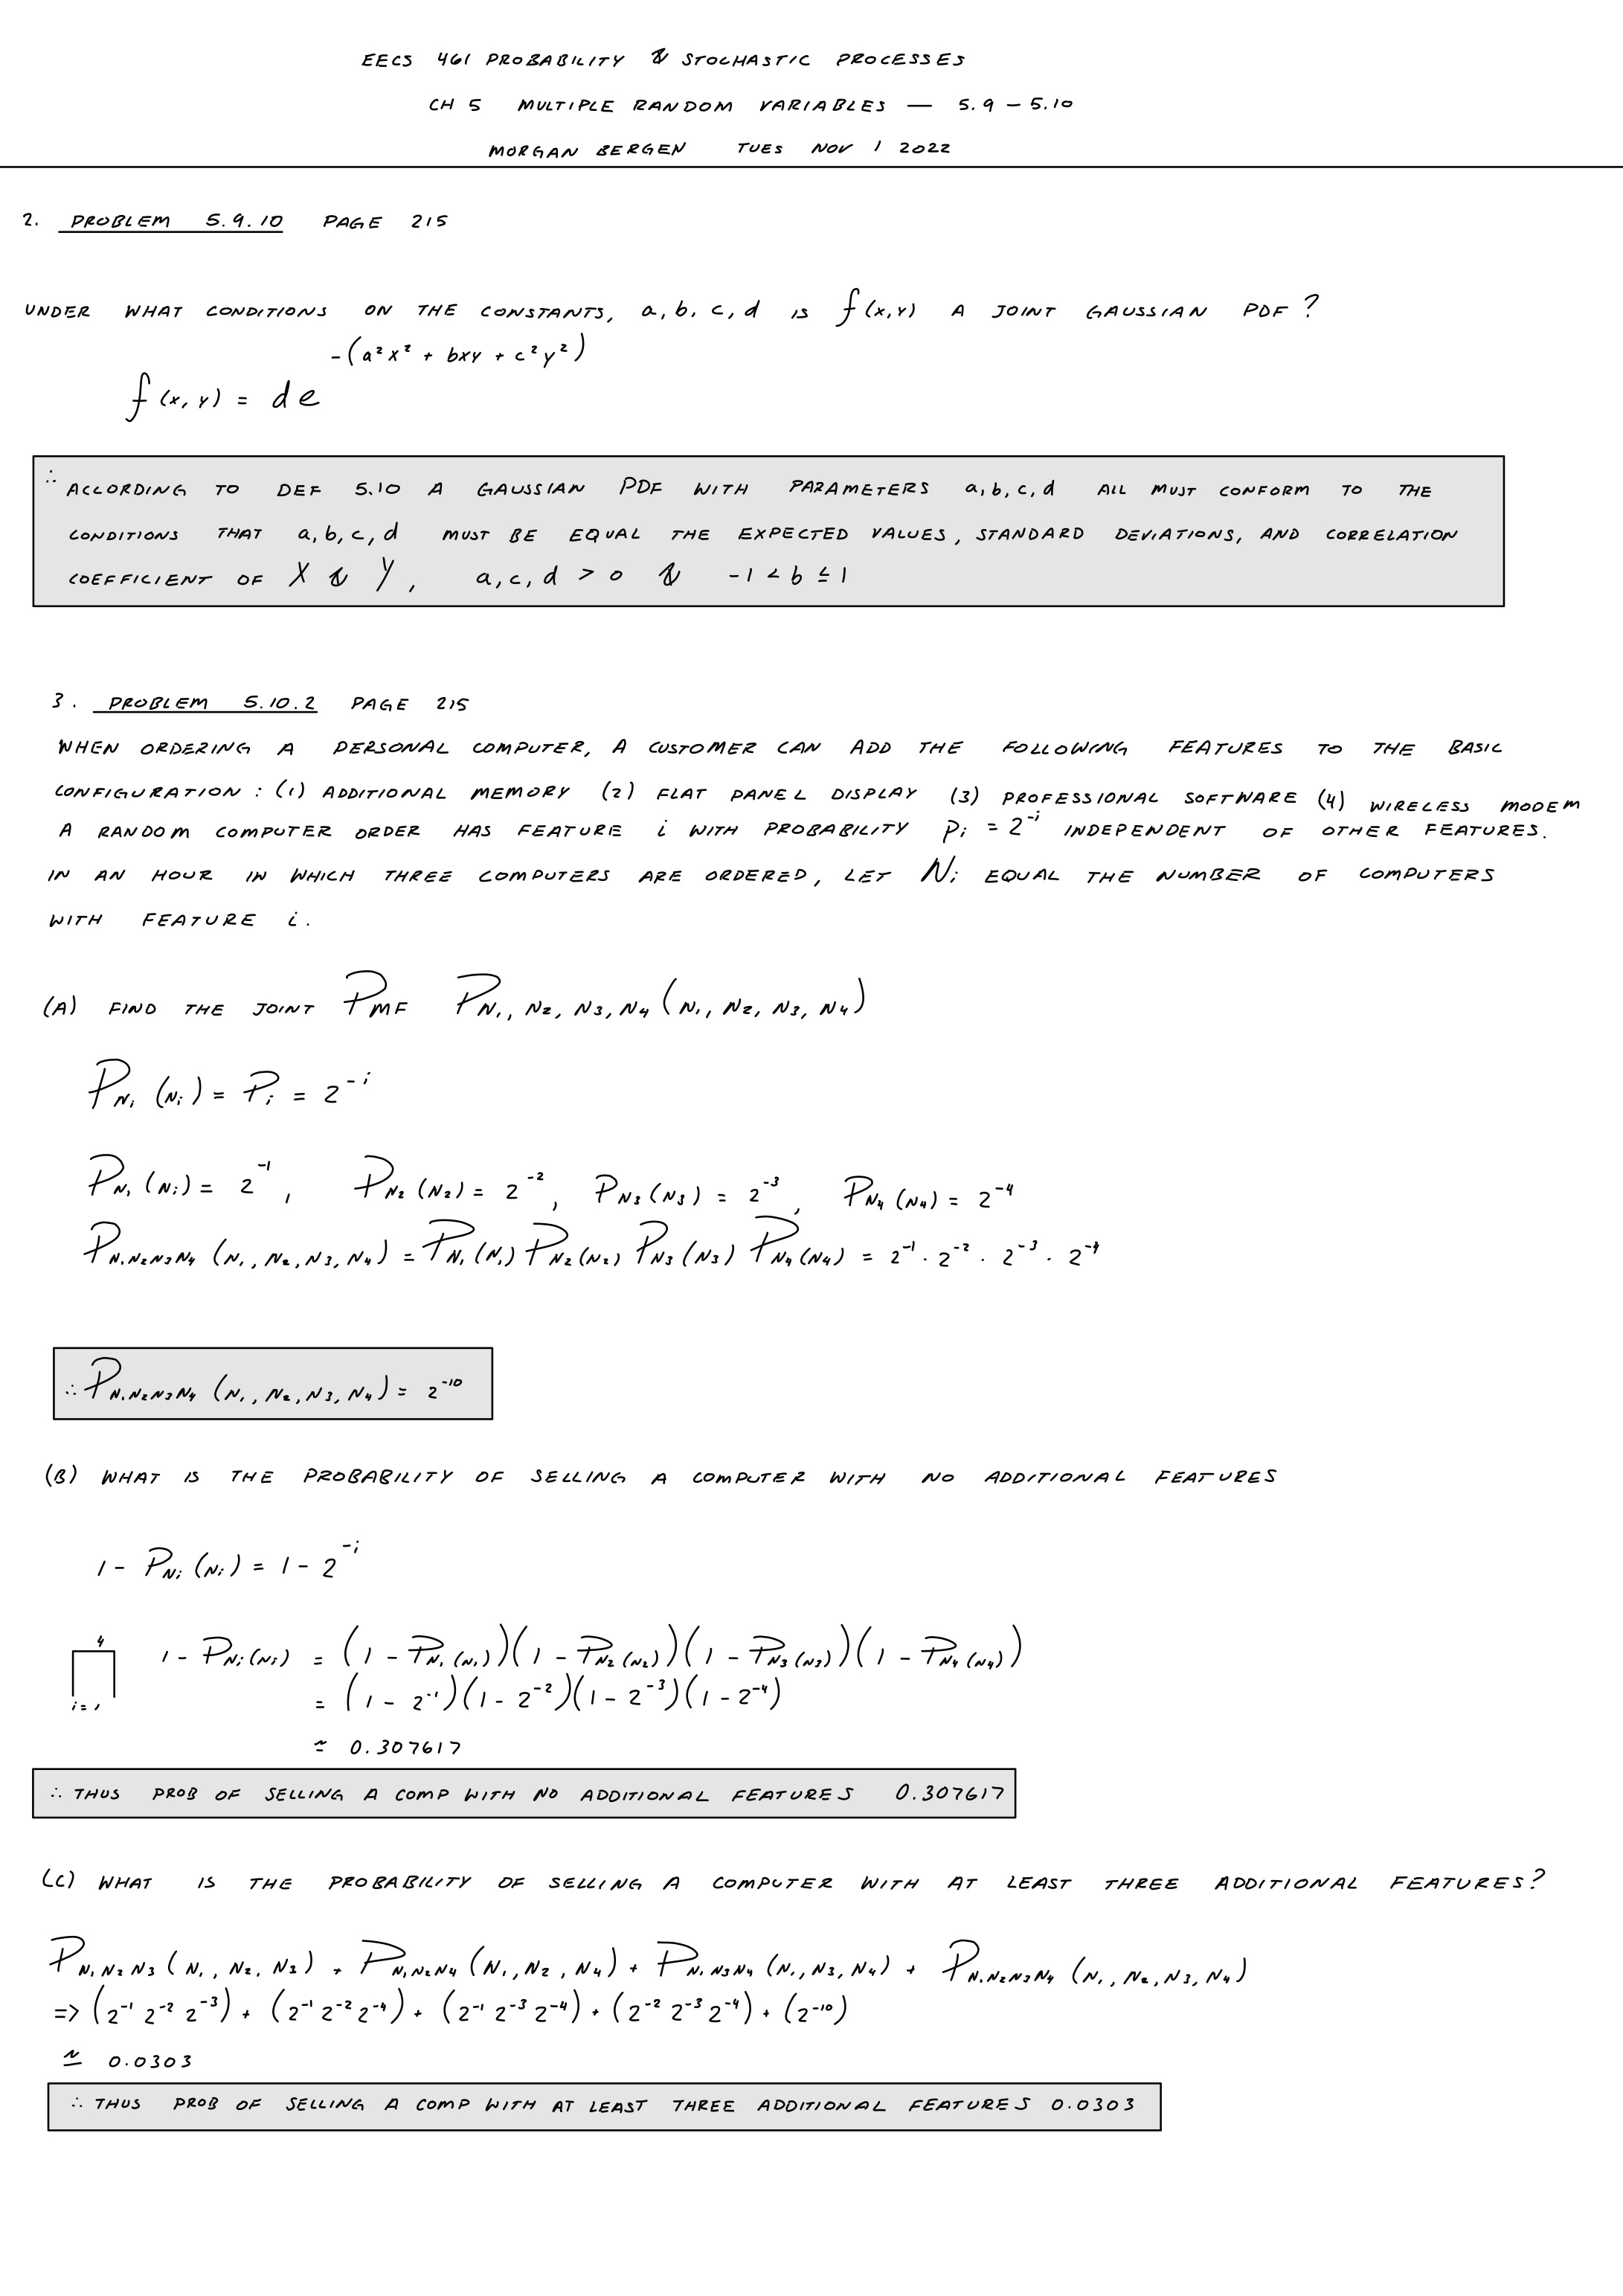 EECS 461 PROBABILITY & STOCHASTIC PROCESSES
CH 5 MULTIPLE RANDOM VARIABLES — 5.9 – 5.10
MORGAN BERGEN TUES NOV 1 2022
2. PROBLEM 5.9.10 PAGE 215
UNDER WHAT CONDITIONS ON THE CONSTANTS, a, b, c, d IS f(x,y) A JOINT GAUSSIAN PDF?
-(a²x² + bxy + c²y²)
f(x, y) = de
∴ ACCORDING TO DEF 5.10 A GAUSSIAN PDF WITH PARAMETERS a,b,c,d ALL MUST CONFORM TO THE
CONDITIONS THAT a,b,c,d MUST BE EQUAL THE EXPECTED VALUES, STANDARD DEVIATIONS, AND CORRELATION
COEFFICIENT OF X & Y, a,c,d > 0 & -1 < b ≤ 1
3. PROBLEM 5.10.2 PAGE 215
WHEN ORDERING A PERSONAL COMPUTER, A CUSTOMER CAN ADD THE FOLLOWING FEATURES TO THE BASIC
CONFIGURATION: (1) ADDITIONAL MEMORY (2) FLAT PANEL DISPLAY (3) PROFESSIONAL SOFTWARE (4) WIRELESS MODEM
A RANDOM COMPUTER ORDER HAS FEATURE i WITH PROBABILITY Pi = 2⁻ⁱ INDEPENDENT OF OTHER FEATURES.
IN AN HOUR IN WHICH THREE COMPUTERS ARE ORDERED, LET Ni EQUAL THE NUMBER OF COMPUTERS
WITH FEATURE i.
(A) FIND THE JOINT PMF P_N1,N2,N3,N4 (N1, N2, N3, N4)
P_Ni (Ni) = Pi = 2⁻ⁱ
P_N1 (Ni) = 2⁻¹, P_N2 (N2) = 2⁻², P_N3 (N3) = 2⁻³, P_N4 (N4) = 2⁻⁴
P_N1N2N3N4 (N1, N2, N3, N4) = P_N1 (N1) P_N2 (N2) P_N3 (N3) P_N4 (N4) = 2⁻¹ · 2⁻² · 2⁻³ · 2⁻⁴
∴ P_N1N2N3N4 (N1, N2, N3, N4) = 2⁻¹⁰
(B) WHAT IS THE PROBABILITY OF SELLING A COMPUTER WITH NO ADDITIONAL FEATURES
1 - P_Ni (Ni) = 1 - 2⁻ⁱ
4 ∏ i=1 1 - P_Ni (Ni) = (1 - P_N1 (N1))(1 - P_N2 (N2))(1 - P_N3 (N3))(1 - P_N4 (N4))
= (1 - 2⁻¹)(1 - 2⁻²)(1 - 2⁻³)(1 - 2⁻⁴)
≃ 0.307617
∴ THUS PROB OF SELLING A COMP WITH NO ADDITIONAL FEATURES 0.307617
(C) WHAT IS THE PROBABILITY OF SELLING A COMPUTER WITH AT LEAST THREE ADDITIONAL FEATURES?
P_N1N2N3 (N1, N2, N3) + P_N1N2N4 (N1, N2, N4) + P_N1N3N4 (N1, N3, N4) + P_N1N2N3N4 (N1, N2, N3, N4)
=> (2⁻¹ 2⁻² 2⁻³) + (2⁻¹ 2⁻² 2⁻⁴) + (2⁻¹ 2⁻³ 2⁻⁴) + (2⁻² 2⁻³ 2⁻⁴) + (2⁻¹⁰)
≃ 0.0303
∴ THUS PROB OF SELLING A COMP WITH AT LEAST THREE ADDITIONAL FEATURES 0.0303